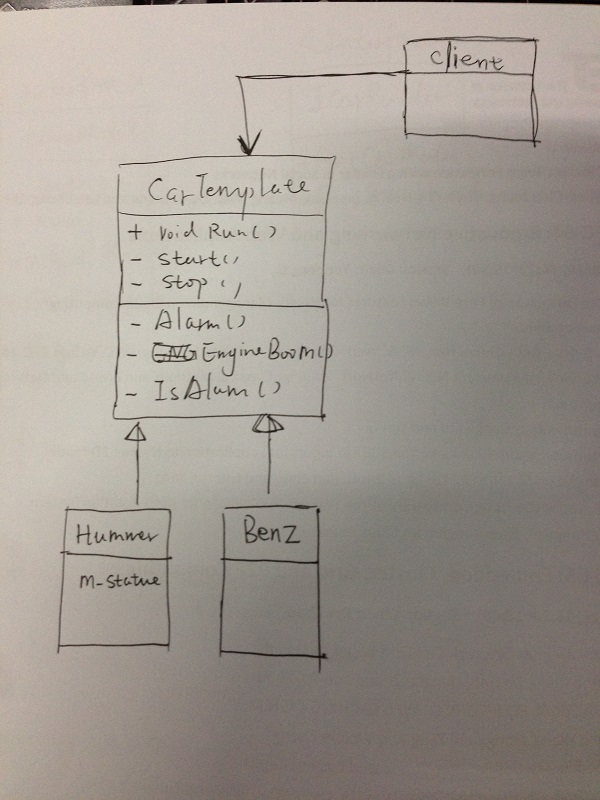 client
CarTemplate
+ void Run()
- Start()
- Stop()
- Alarm()
- EngineBoom()
- IsAlarm()
Hummer
Benz
m-statue